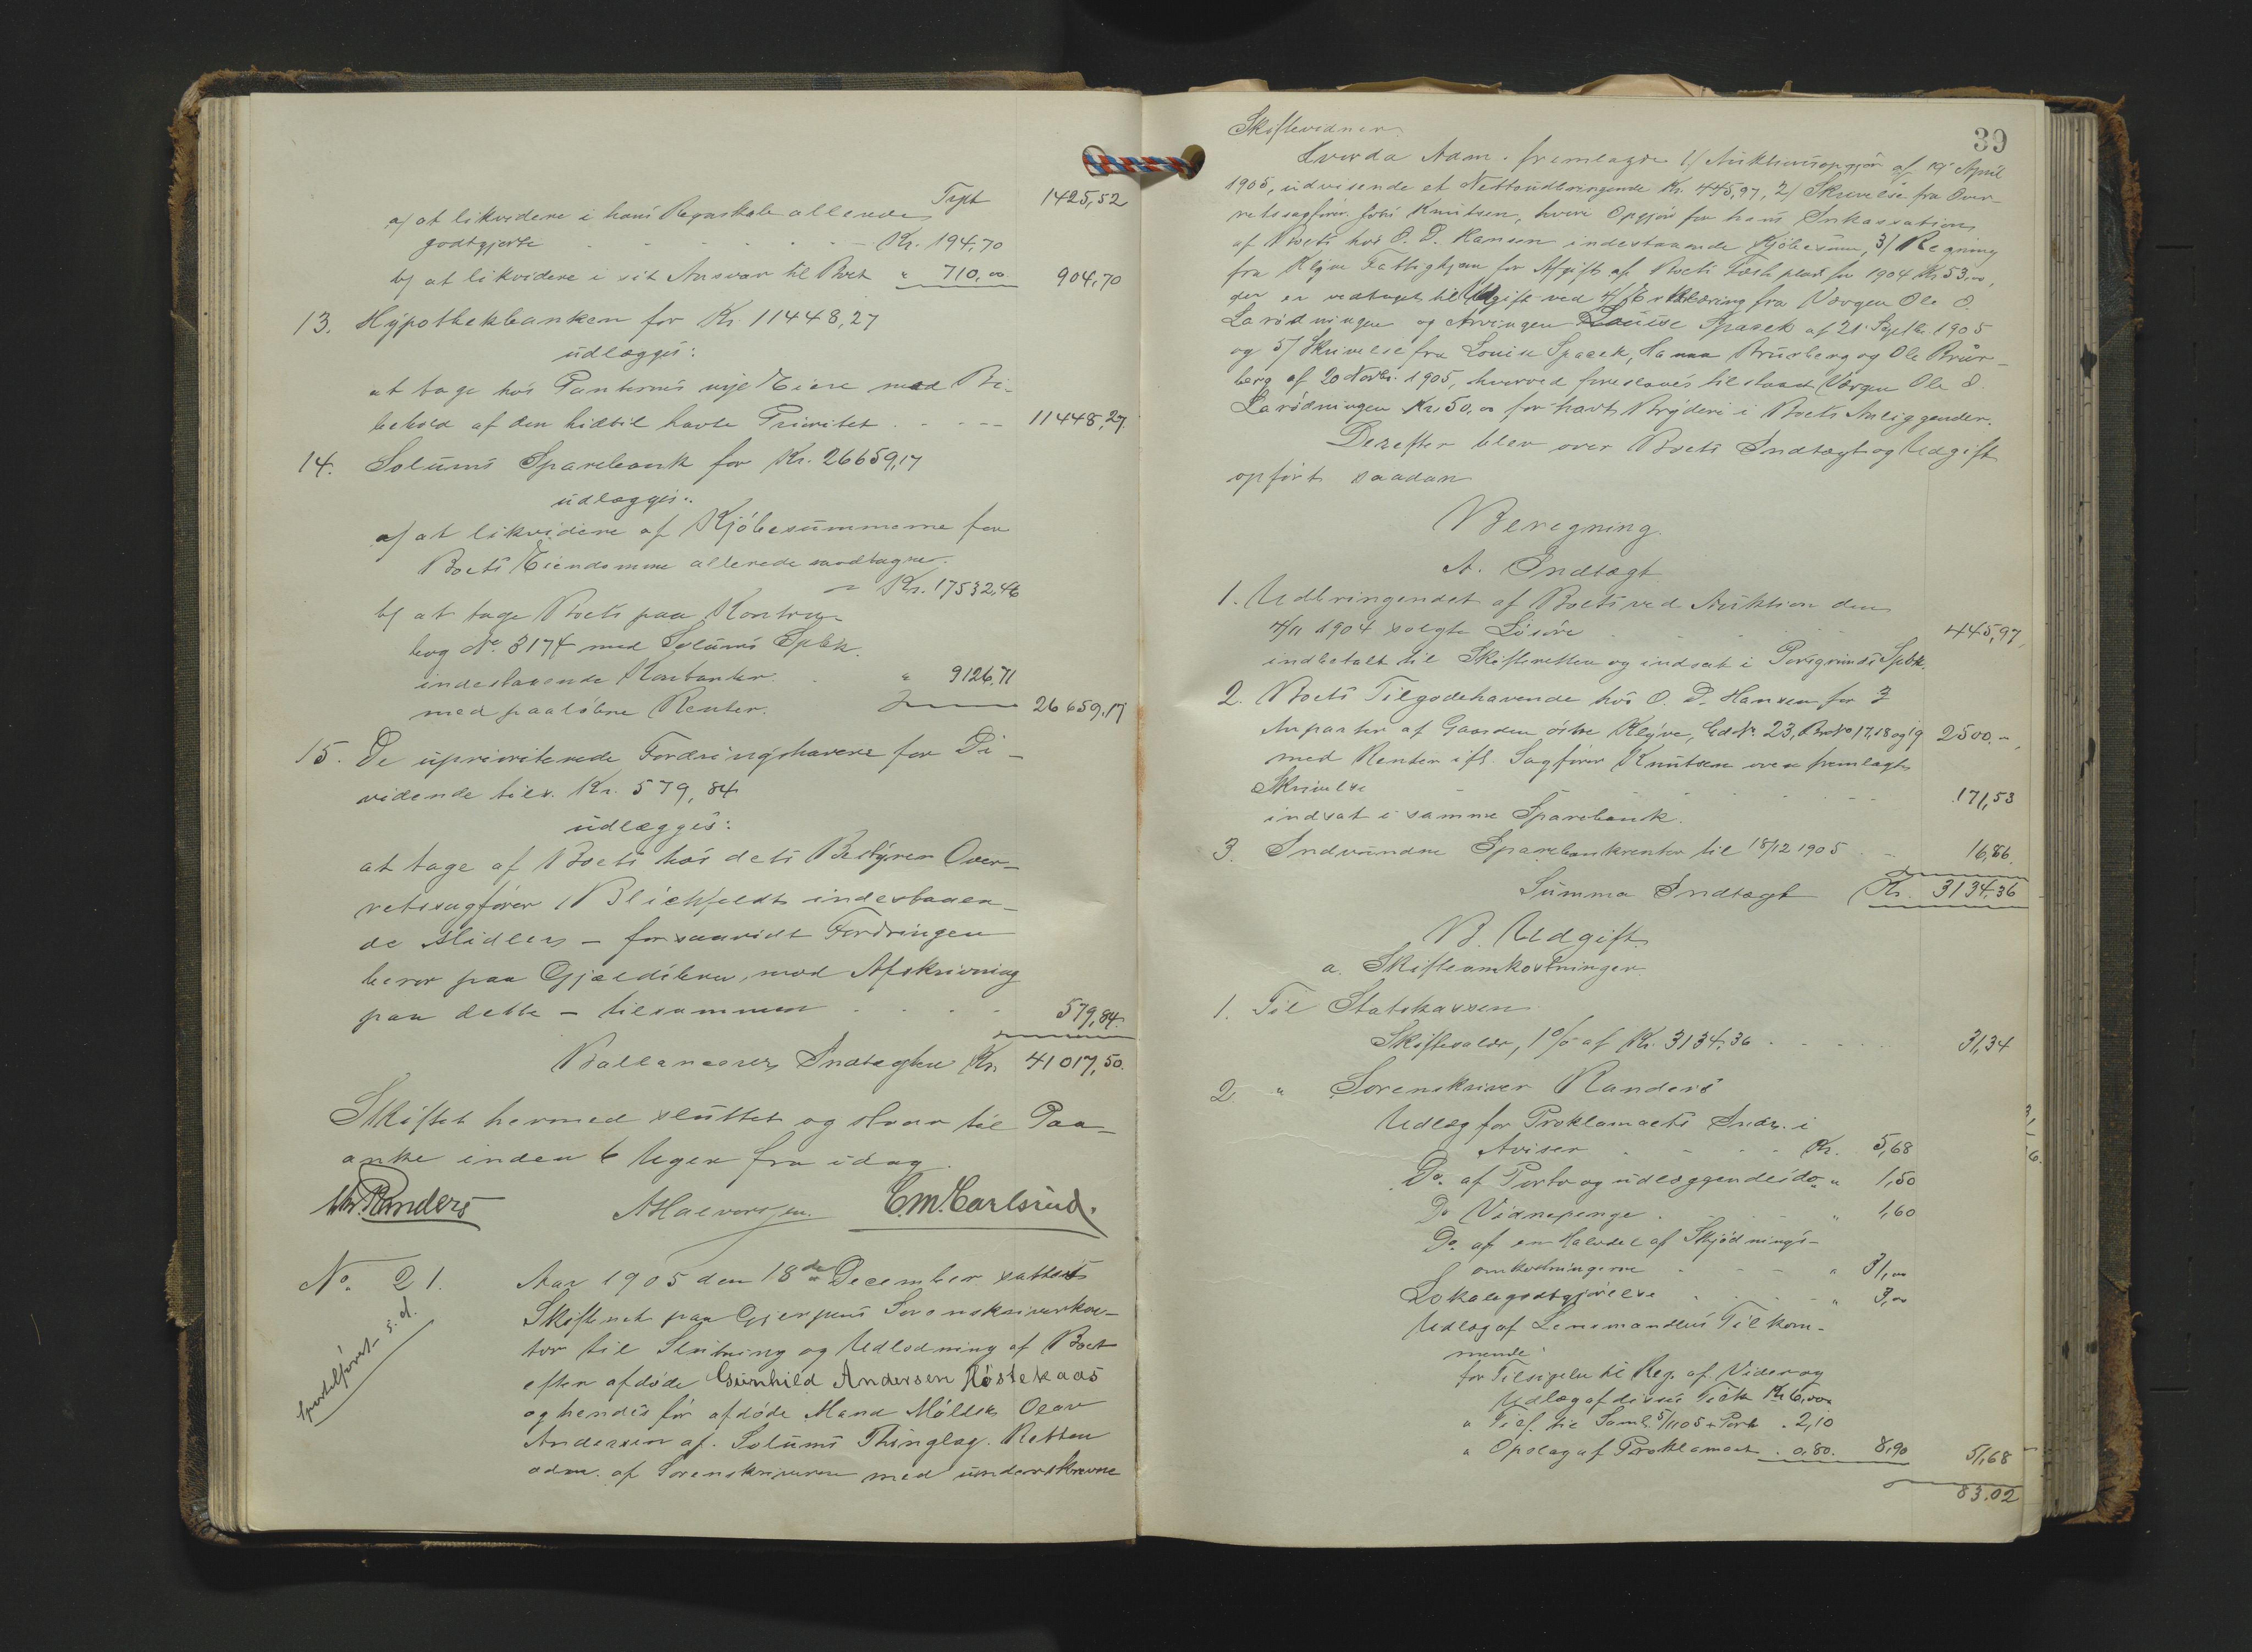 Tpt 1425,52
a/ at likvidere i hans Regnskab allerede
godtgjorte Kr. 194,70
b/ at likvidere i sit Ansvar til Boet " 710,00 904,70
13. Hypothekbanken for Kr. 11448,27
udlægges:
at tage hos Panternes nye Eiere med Bi-
behold af den hidtil havte Prioritet 11448,27.
14. Solums Sparebank for Kr. 26659,17
udlægges:
a/ at likvidere af Kjöbesummerne for
Boets Eiendomme allerede modtagne
Kr. 17532,46
b/ at tage Boets paa Kontra-
bog No. 3174 med Solums Spbk.
indestaaende Kontanter " 9126,71
med paaløbne Renter. 26659,17
15. De uprioriterede Fordringshavere for Di-
vidende tils. Kr. 579,84
udlægges:
at tage af Boets hos dets Bestyrer Over-
retssagfører Blichfeldt indestaaen-
de Midler - forsaavidt Fordringen
beror paa Gjældsbrev, mod Afskrivning
paa dette - tilsammen 579,84.
Ballancerer Indtægten Kr. 41017,50.
Skiftet hermed sluttet og staar til Paa-
anke inden 6 Uger fra idag.
Chr. Randers AHalvorsen. C.M. Carlsrud.
No. 21. Aar 1905 den 18de December sattes
Skifteret paa Gjerpens Sorenskriverkon-
tor til Slutning og Udlodning af Boet
efter afdøde Gunhild Andersen Höstekaas
og hendes før afdøde Mand Olav
Andersen af Solums Thinglag. Retten
adm. af Sorenskriveren med underskrevne
Sportelføret s.d.
39
Skiftevidner.
Hvorda Adm. fremlagde 1/ Auktionsopgjör af April
1905, udvisende et Nettoudbringende Kr. 445,97, 2/ Skrivelse fra Over-
retssagfører Johs Knutsen, hvori Opgjör for hans Inkassation
af Boets hos O. P. Hansen indestaaende Kjøbesum, 3/ Regning
fra Klyve Fattighjem for Afgift af Boets Fæsteplads for 1904 Kr. 53,00,
der er vedtaget til Udgift ved 4/ Erklæring fra Værgen Ole O.
Larödningen og Arvingen Louise Spaaek af 21 Septbr. 1905
og 5/ Skrivelse fra Louise Spaaek, Hanna Brusberg og Ole Brus-
berg af 20 Novbr. 1905, hvorved foreslaaes tilstaaet Værgen Ole O.
Larödningen Kr. 50,00 for havt Bryderi i Boets Anliggender.
Derefter blev over Boets Indtægt og Udgift
opfört saadan
Beregning.
A. Indtægt
1. Udbringendet af Boets ved Auktion den
4/11 1904 solgte Lösöre 445,97
indbetalt til Skifteretten og indsat i Porsgrunds Spbk.
2. Boets Tilgodehavende hos O. P. Hansen for 3
Anparter af Gaarden östre Klyve, Gd No. 23, Br No 17, 18 og 19 2500.-
med Renter ifl. Sagfører Knutsen oven fremlagte
Skrivelse 171,53
indsat i samme Sparebank.
3. Indvundne Sparebankrenter til 18/12 1905 16,86.
Summa Indtægt Kr. 3134,36
B. Udgift
a. Skifteomkostninger.
1. Til Statskassen
Skiftesalær, 1% af Kr. 3134,36 31,34
2. " Sorenskriver Randers
Udlæg for Proklamaets Indr. i
Aviser Kr. 5,68
Do. af Porto og udlæggendes do. " 1,50
Do Vidnepenge " 1,60
Do. af en Halvdel af Skjödnings-
omkostningerne " 31,00
Lokalegodtgjörelse " 3,00
Udlæg af Lensmandens Tilkom-
mende
for Tilsigelse til Reg. af Vidner og
Udlæg af disses Kr. 6,00
" Tils. til Saml. 5/11 05 + Porto . 2,10
" Opslag af Proklamaet . 0,80. 8,90 51,68
83.02